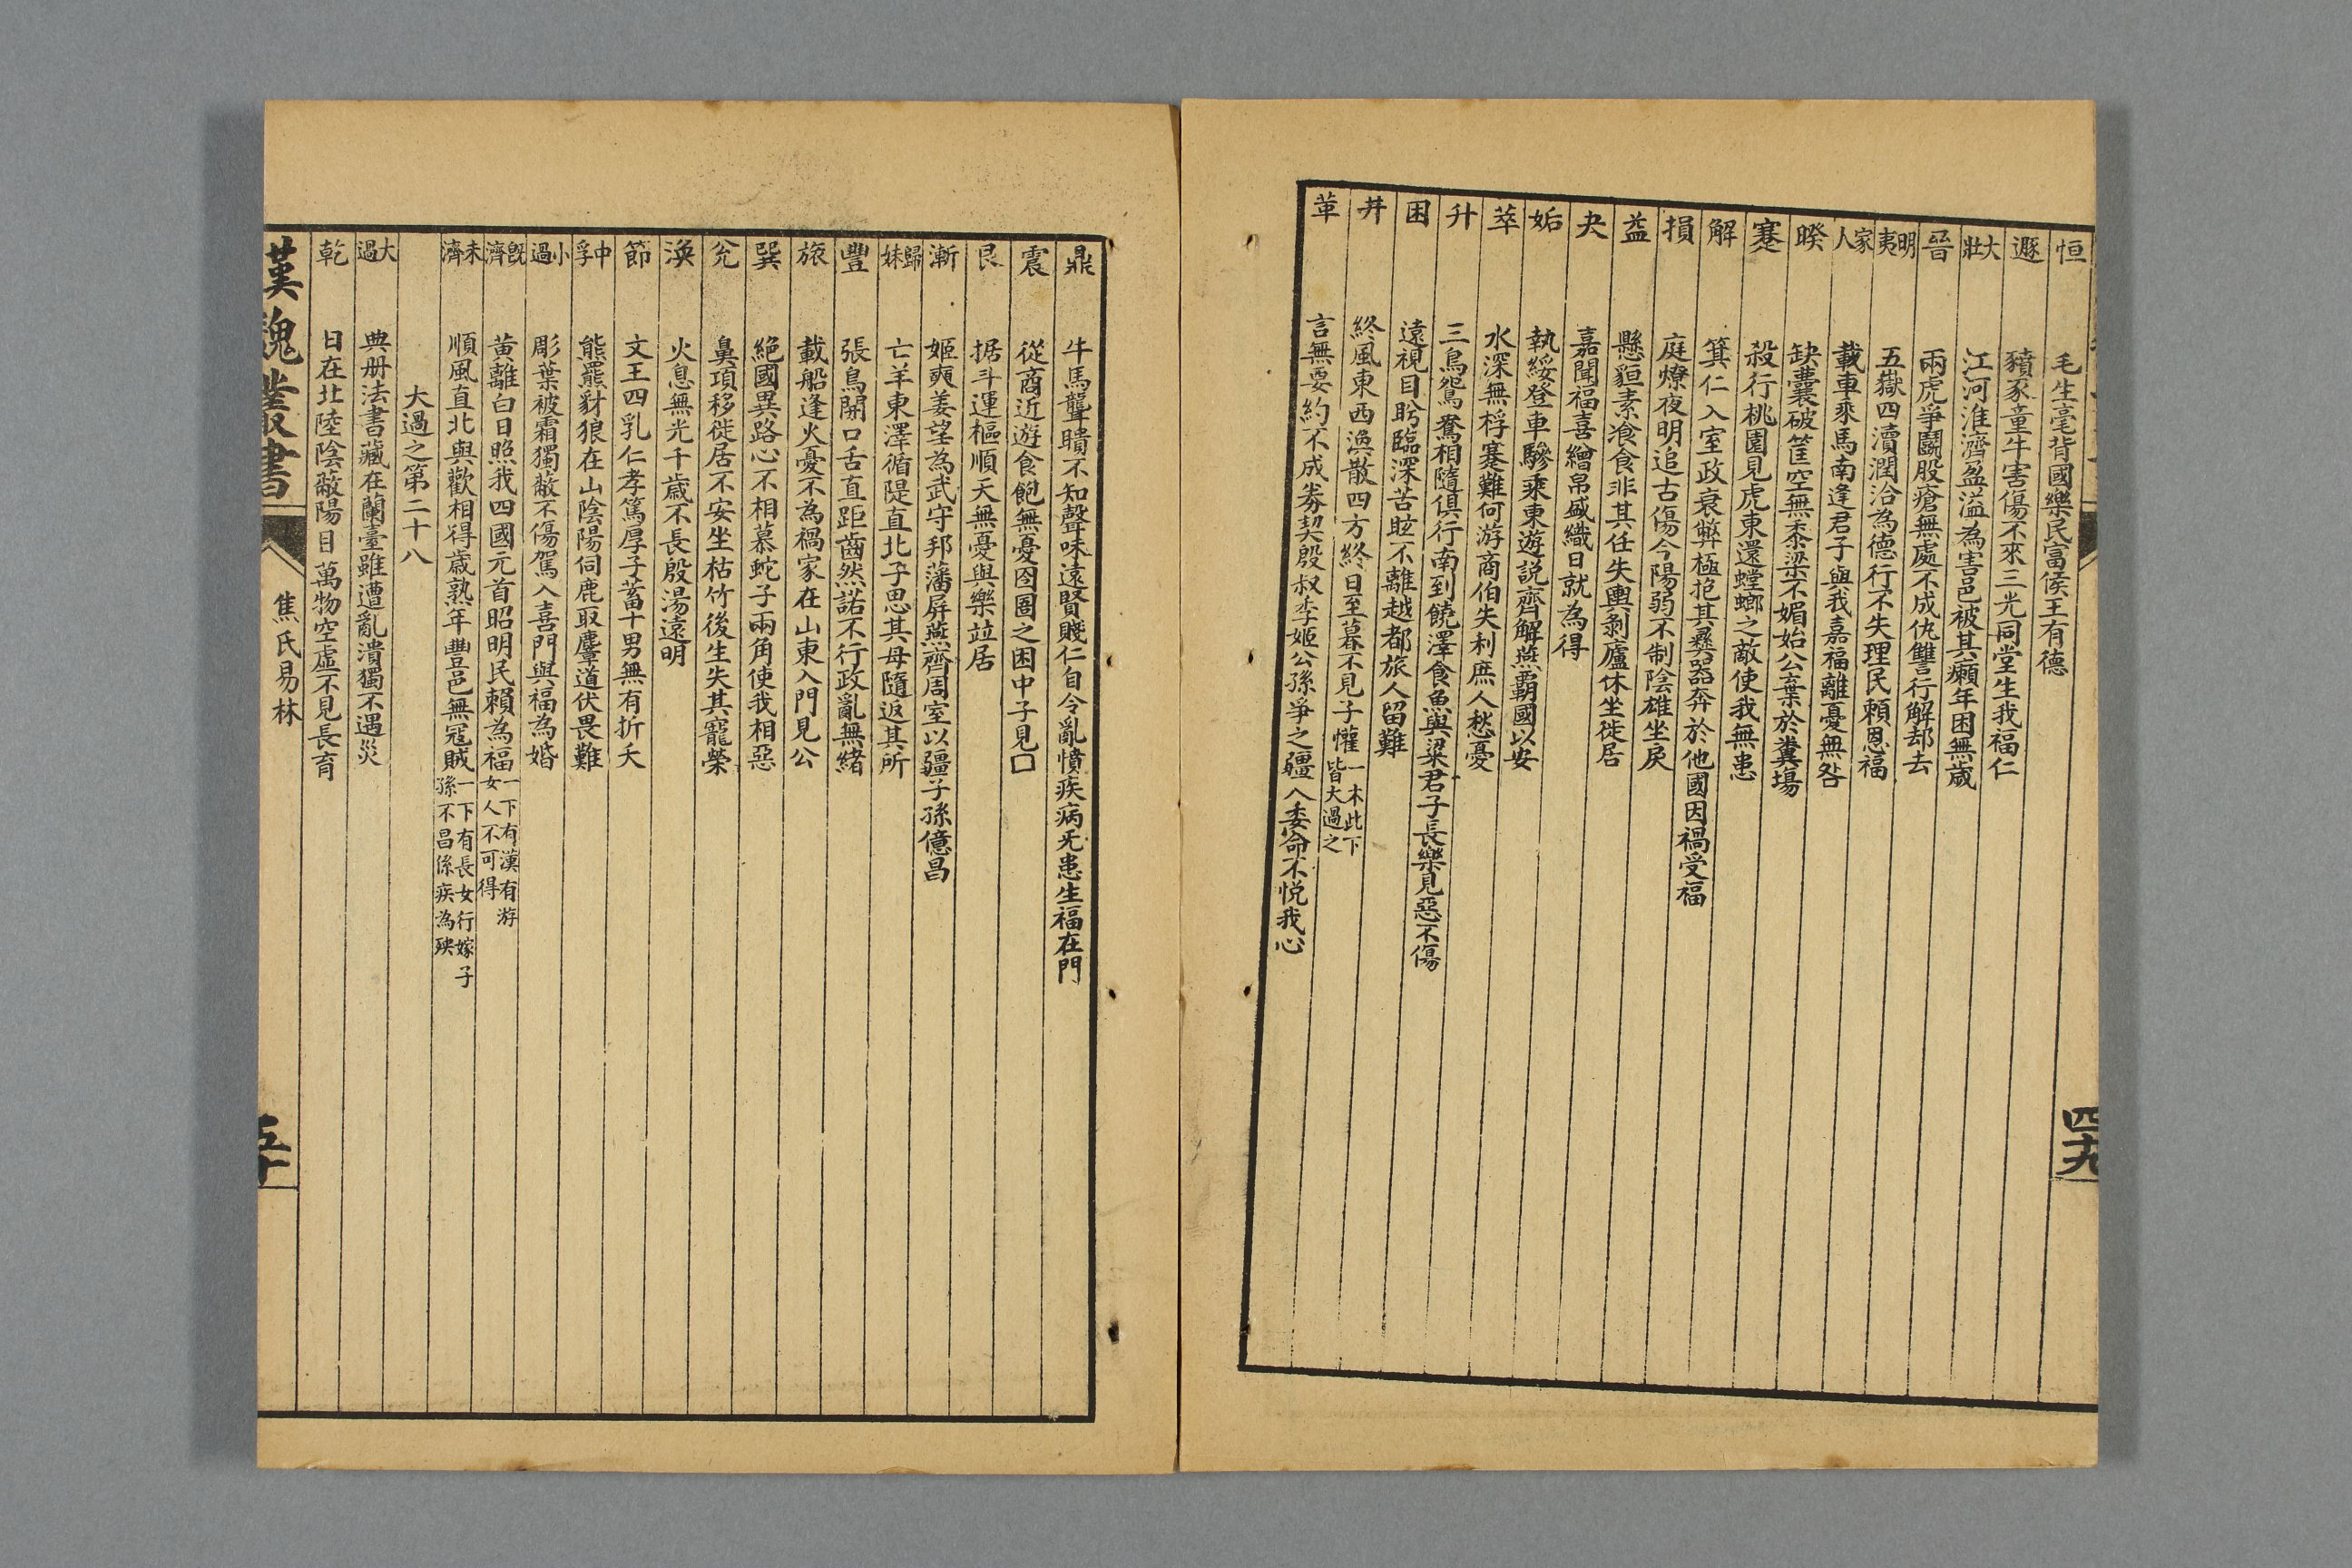 恒 毛生毫背國樂民富侯王有德
遯 豶豕童牛害傷不來三光同堂生我福仁
大壯 江河淮濟盈溢為害邑被其癩年困無歲
晉 兩虎爭鬬股瘡無處不成仇讐行解却去
明夷 五嶽四瀆潤洽為德行不失理民賴恩福
家人 載車乘馬南逢君子與我嘉福離憂無咎
暌 缺囊破筐空無黍粱不媚始公棄於糞塲
蹇 殺行桃園見虎東還螳螂之敵使我無患
解 箕仁入室政衰弊極抱其彞器奔於他國因禍受福
損 庭燎夜明追古傷今陽弱不制陰雄坐戾
益 懸貆素飡食非其任失輿剝廬休坐徙居
夬 嘉聞福喜繒帛盛織日就為得
姤 執綏登車驂乘東遊説齊解燕霸國以安
萃 水深無桴蹇難何游商伯失利庶人愁憂
升 三鳥鴛鴦相隨俱行南到饒澤食魚與粱君子長樂見惡不傷
困 遠視目盻臨深苦眩不離越都旅人留難
井 終風東西渙散四方終日至暮不見子懽 一本此下皆大過之
革 言無要約不成券契殷叔季姬公孫爭之彊入委命不悦我心
四十九
鼎 牛馬聾聵不知聲味遠賢賤仁自令亂憒疾病无患生福在門
震 從商近遊食飽無憂囹圄之困中子見囗
艮 据斗運樞順天無憂與樂竝居
漸 姬奭姜望為武守邦藩屏燕齊周室以彊子孫億昌
歸妹 亡羊東澤循隄直北子思其母隨返其所
豐 張鳥開口舌直距齒然諾不行政亂無緒
旅 載船逢火憂不為禍家在山東入門見公
巽 絕國異路心不相慕蛇子兩角使我相惡
兌 鼻項移徙居不安坐枯竹後生失其寵榮
渙 火息無光千歲不長殷湯遠明
節 文王四乳仁孝篤厚子蓄十男無有折夭
中孚 熊羆豺狼在山陰陽伺鹿取麞道伏畏難
小過 彫葉被霜獨蔽不傷駕入喜門與福為婚
旣濟 黃離白日照我四國元首昭明民賴為福 一下有漢有游女人不可得
未濟 順風直北與歡相得歲熟年豐邑無寇賊 一下有長女行嫁子孫不昌係疾為殃
大過之第二十八
大過 典册法書藏在蘭臺雖遭亂潰獨不遇災
乾 日在北陸陰蔽陽目萬物空虛不見長育
漢魏叢書 焦氏易林 五十